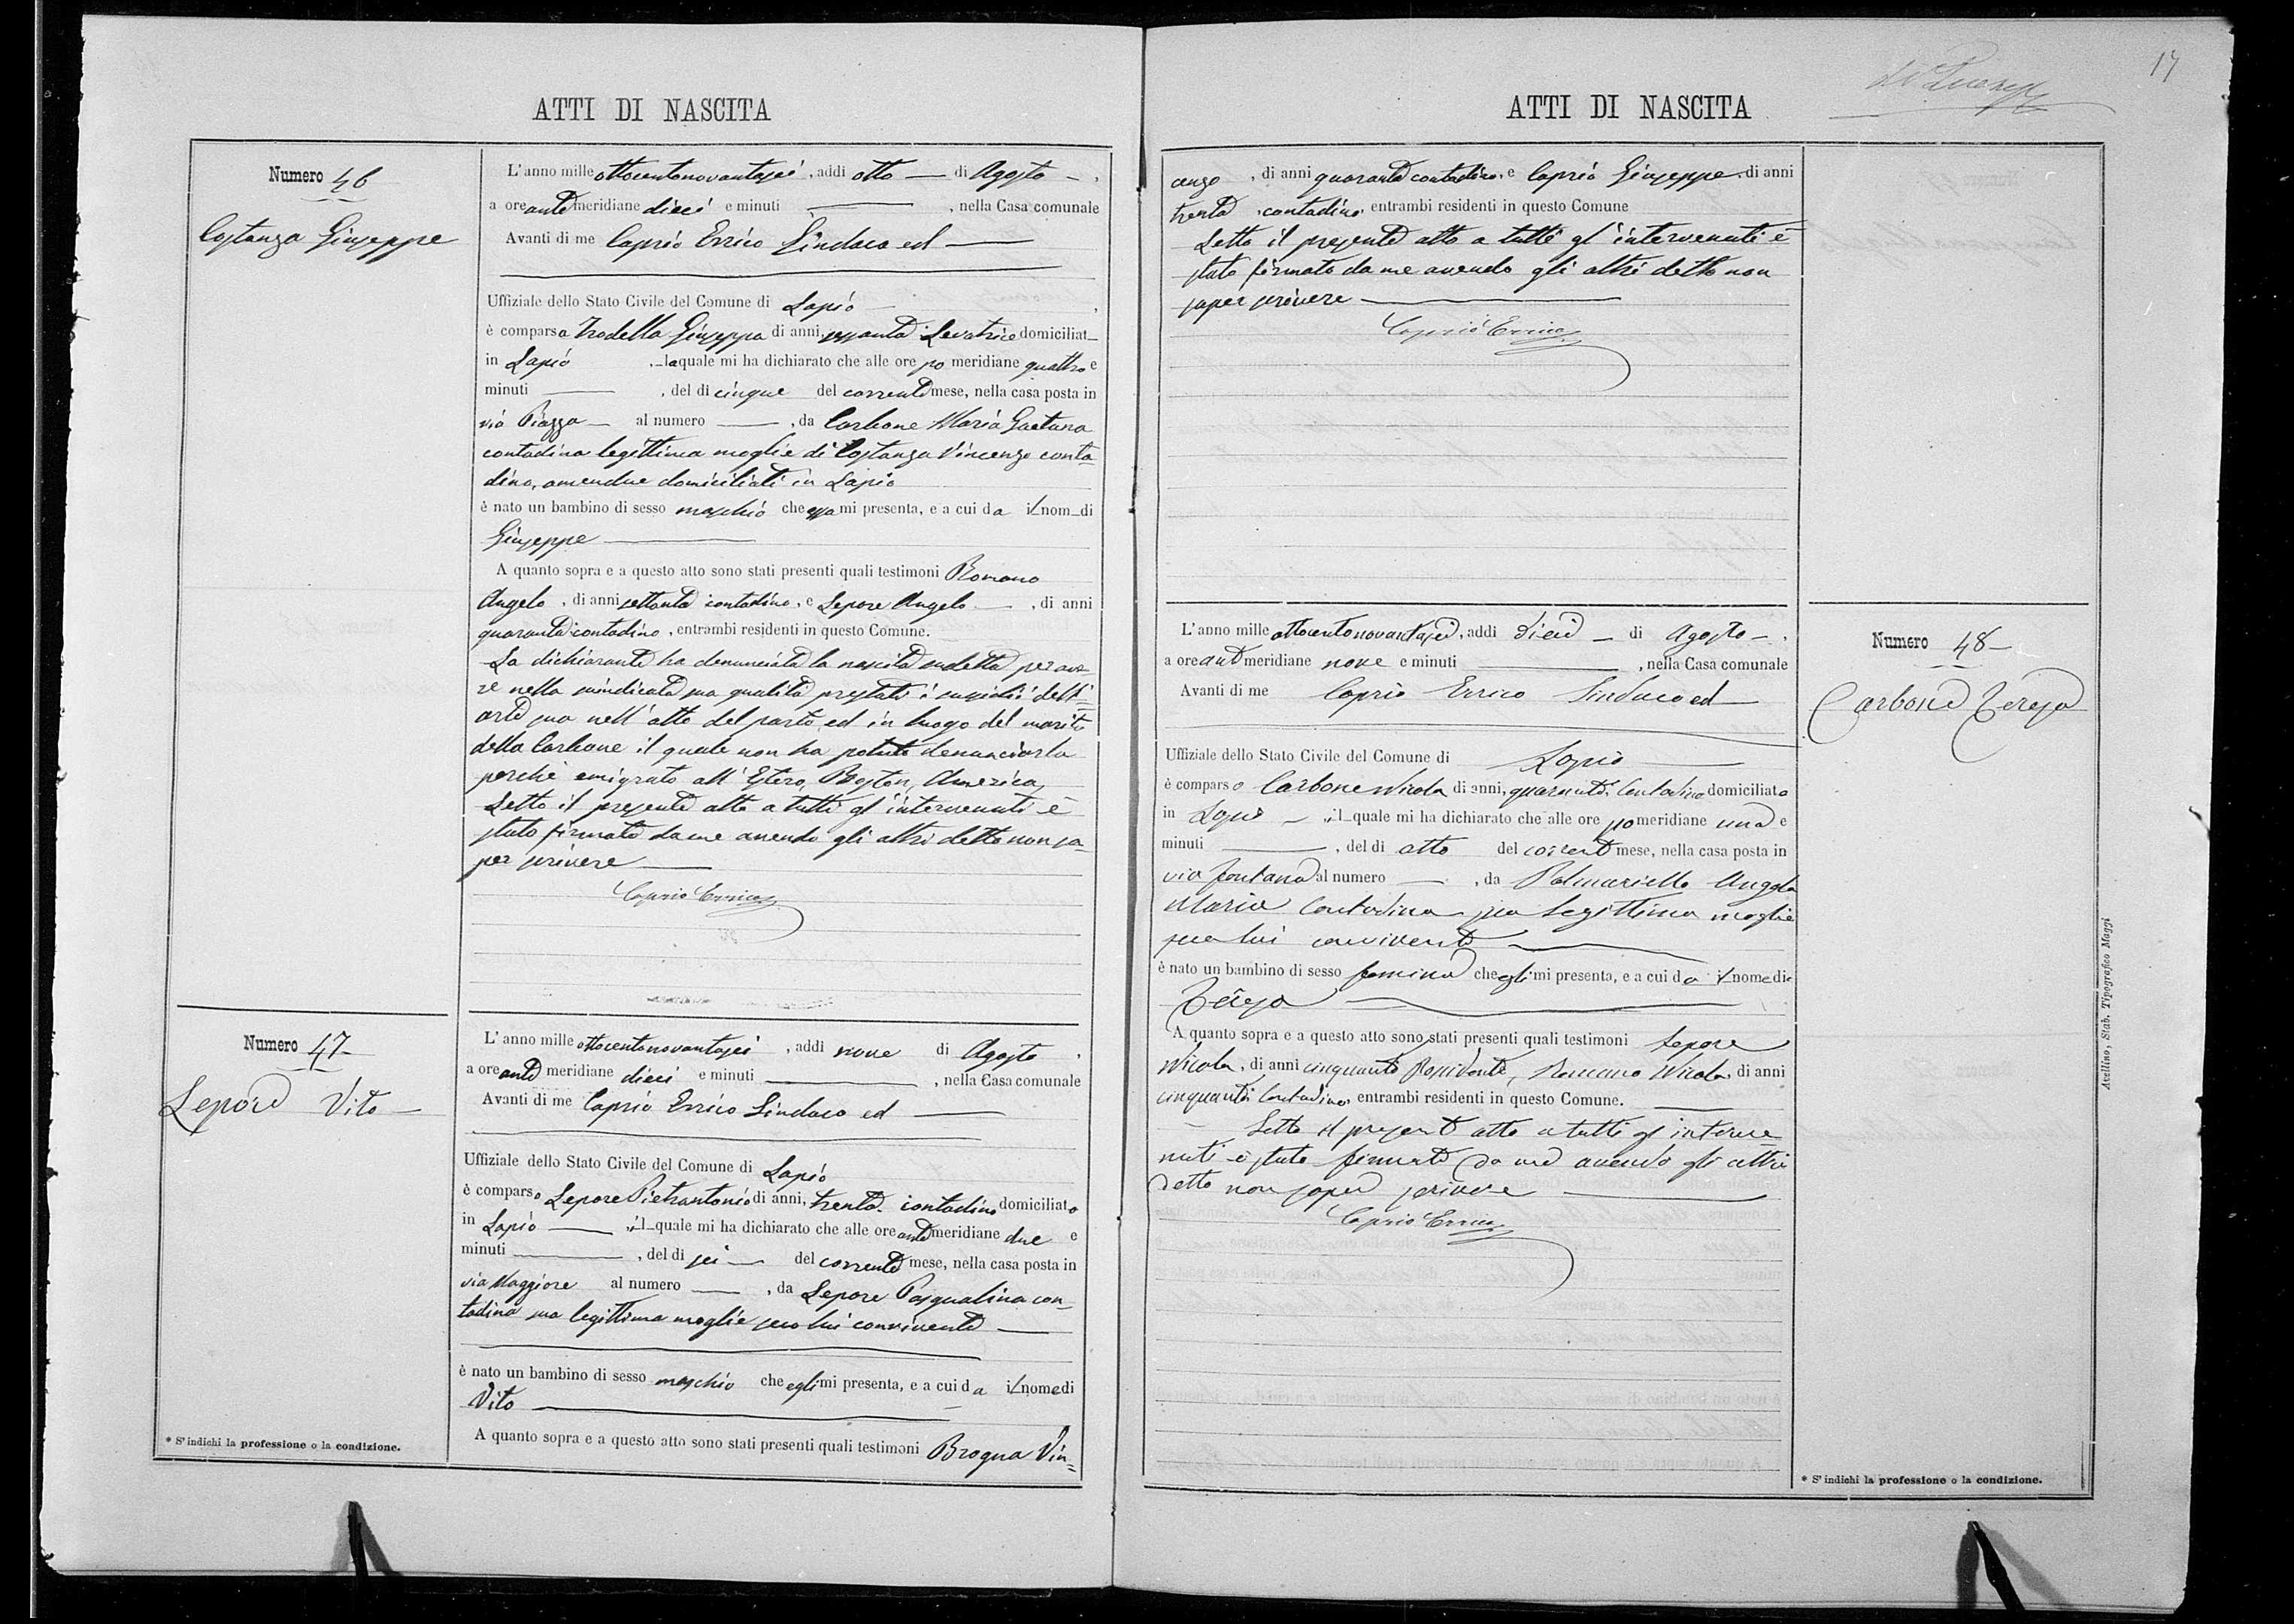 ATTI DI NASCITA
Numero 46
Costanza Giuseppe
L'anno mille ottocentonovantasei, addi otto — di Agosto —,
a ore ante meridiane dieci e minuti — , nella Casa comunale
Avanti di me Caprio Errico Sindaco ed —
Uffiziale dello Stato Civile del Comune di Lapio
è comparsa Trodella Giuseppa di anni, sessanta Levatrice domiciliat_
in Lapio , _laquale mi ha dichiarato che alle ore po meridiane quattro e
minuti — , del di cinque del corrente mese, nella casa posta in
via Piazza — al numero — , da Carbone Maria Gaetana
contadina legittima moglie di Costanza Vincenzo conta-
dino, amendue domiciliati in Lapio
è nato un bambino di sesso maschio che essa mi presenta, e a cui da il nom_ di
Giuseppe —
A quanto sopra e a questo atto sono stati presenti quali testimoni Romano
Angelo , di anni settanta contadino, e Lepore Angelo — , di anni
quaranta contadino , entrambi residenti in questo Comune.
La dichiarante ha denunciata la nascita sudetta per ave-
re nella suindicata sua qualità prestati i sussidii dell'
arte sua nell'atto del parto, ed in luogo del marito
della Carbone il quale non ha potuto denunciarla
perchè emigrato all'Estero, Boston, America,
Letto il presente atto a tutti gl'intervenuti è
stato firmato da me avendo gli altri detto non sa-
per scrivere —
Caprio Errico
Numero 47-
Lepore Vito —
L'anno mille ottocentonovantasei , addi nove di Agosto ,
a ore ante meridiane dieci e minuti — , nella Casa comunale
Avanti di me Caprio Errico Sindaco ed —
Uffiziale dello Stato Civile del Comune di Lapio
è comparso Lepore Pietrantonio di anni, trenta contadino domiciliato
in Lapio — , il_quale mi ha dichiarato che alle ore ante meridiane due e
minuti — , del di sei — del corrente mese, nella casa posta in
via Maggiore al numero — , da Lepore Pasqualina con-
tadina sua legittima moglie seco lui convivente —
è nato un bambino di sesso maschio che egli mi presenta, e a cui da il nome di
Vito —
A quanto sopra e a questo atto sono stati presenti quali testimoni Brogna Vin=
* S'indichi la professione o la condizione.
17
ATTI DI NASCITA
cenzo , di anni quaranta contadino, e Caprio Giuseppe, di anni
trenta , contadino, entrambi residenti in questo Comune
Letto il presente atto a tutti gl'intervenuti è
stato firmato da me avendo gli altri detto non
saper scrivere —
Caprio Errico
L'anno mille ottocentonovantasei, addi dieci — di Agosto — .
a ore ant meridiane nove e minuti — , nella Casa comunale
Avanti di me Caprio Errico Sindaco ed —
Uffiziale dello Stato Civile del Comune di Lapio —
è comparso Carbone Nicola di anni, quaranta, Contadino domiciliato
in Lapio — , il_quale mi ha dichiarato che alle ore po meridiane una e
minuti — , del di otto del corrente mese, nella casa posta in
via fontana al numero — , da Palmariello Angela
Maria Contadina sua legittima moglie
seco lui convivente —
è nato un bambino di sesso femina che egli mi presenta, e a cui da il nome di
Teresa —
A quanto sopra e a questo atto sono stati presenti quali testimoni Lepore
Nicola, di anni cinquanta Possidente, Romano Nicola, di anni
cinquanta Contadino, entrambi residenti in questo Comune. —
Letto il presente atto a tutti gl'interve=
nuti è stato firmato da me avendo gli altri
detto non saper scrivere —
Caprio Errico
Numero 48-
Carbone Teresa
* S'indichi la professione o la condizione.
Avellino, Stab. Tipografico Maggi